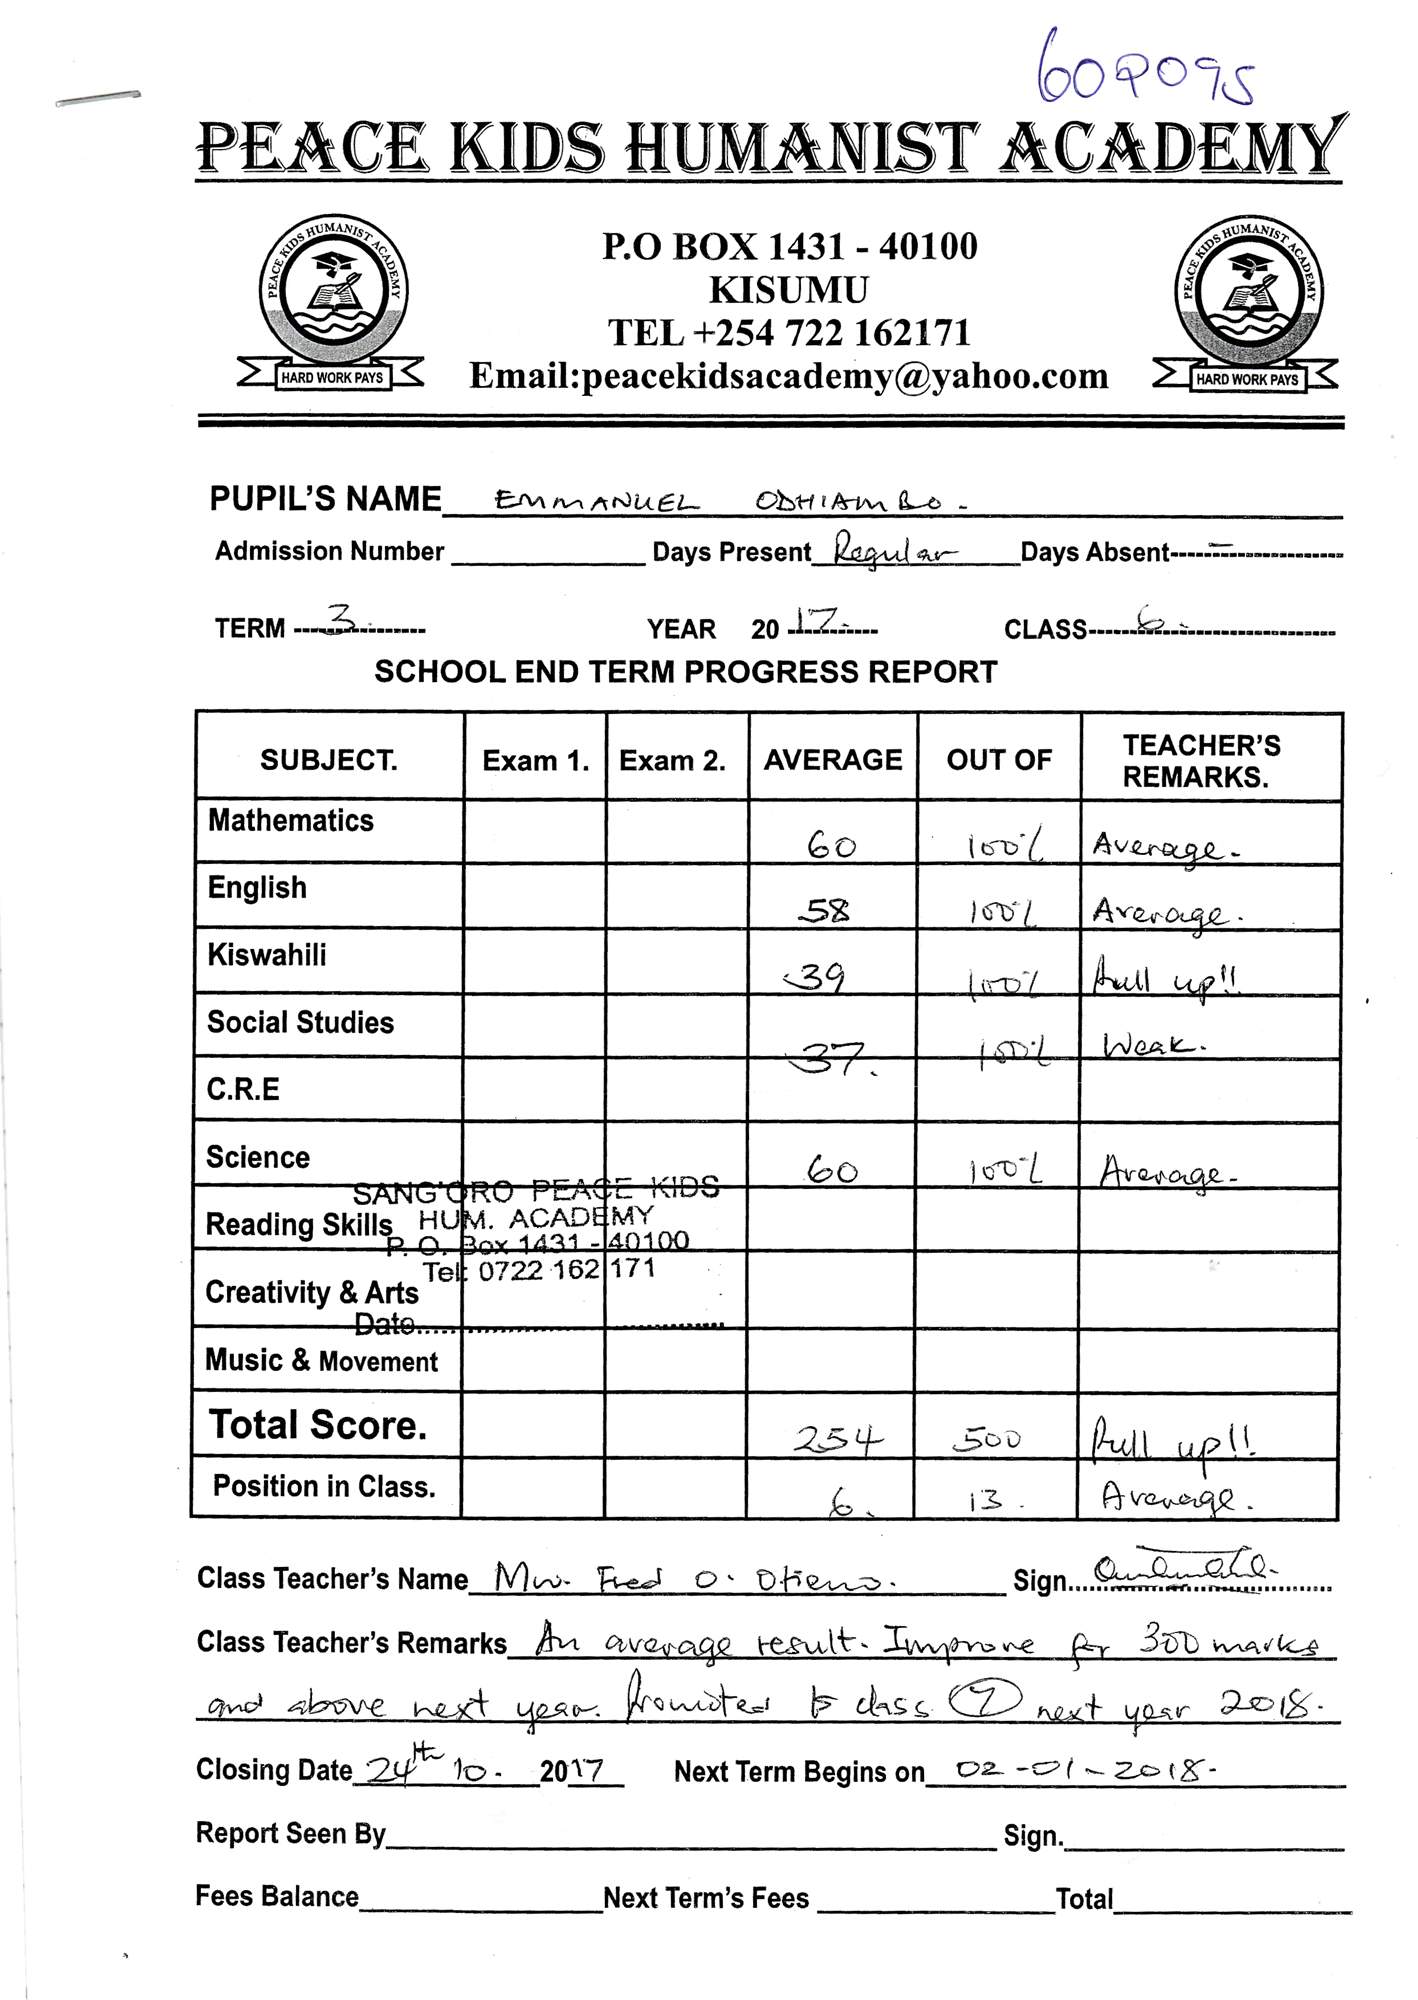 609095
PEACE KIDS HUMANIST ACADEMY
PEACE KIDS HUMANIST ACADEMY
HARD WORK PAYS
P.O BOX 1431 - 40100
KISUMU
TEL +254 722 162171
Email:peacekidsacademy@yahoo.com
PEACE KIDS HUMANIST ACADEMY
HARD WORK PAYS
PUPIL'S NAME EMMANUEL ODHIAMBO.
Admission Number Days Present Regular Days Absent -
TERM 3 YEAR 2017. CLASS 6.
SCHOOL END TERM PROGRESS REPORT
SUBJECT. Exam 1. Exam 2. AVERAGE OUT OF TEACHER'S REMARKS.
Mathematics 60 100% Average.
English 58 100% Average.
Kiswahili 39 100% Pull up!!
Social Studies 37. 100% Weak.
C.R.E
Science 60 100% Average.
SANG'ORO PEACE KIDS
Reading Skills
HUM. ACADEMY
P. O. Box 1431 - 40100
Tel: 0722 162 171
Creativity & Arts
Date
Music & Movement
Total Score. 254 500 Pull up!!
Position in Class. 6. 13. Average.
Class Teacher's Name Mr. Fred O. Otieno. Sign.
Class Teacher's Remarks An average result. Improve for 300 marks
and above next year. Promoted to class 7 next year 2018.
Closing Date 24th 10. 2017 Next Term Begins on 02-01-2018.
Report Seen By Sign.
Fees Balance Next Term's Fees Total